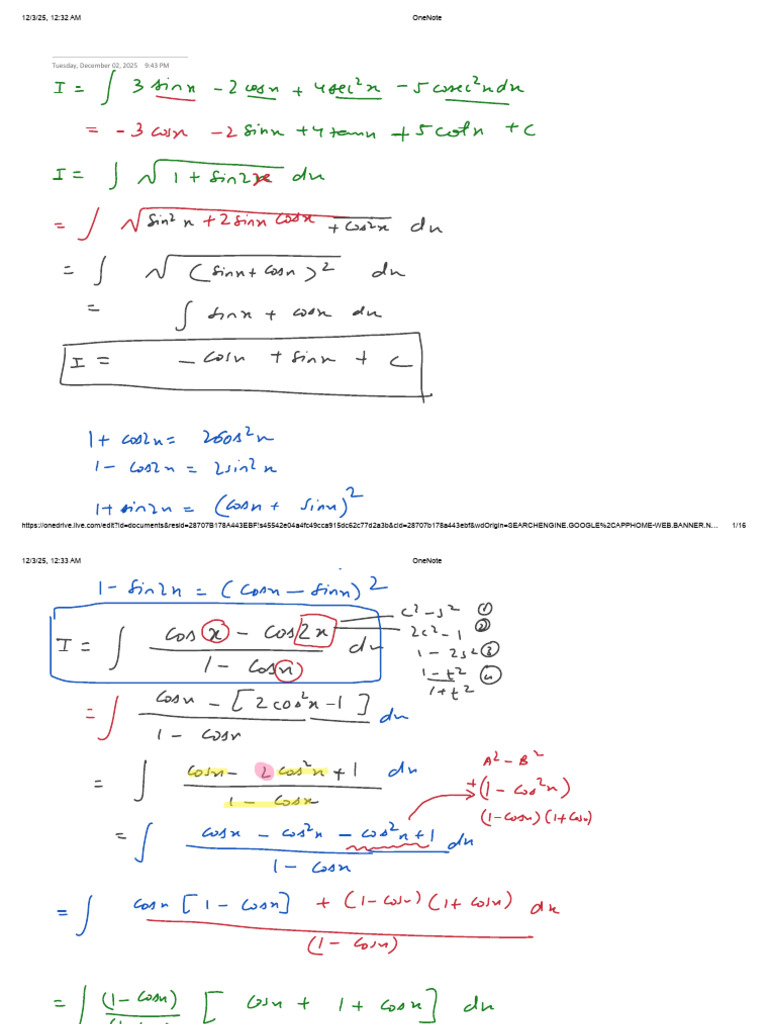 12/3/25, 12:32 AM OneNote
Tuesday, December 02, 2025 9:43 PM
I = ∫ 3 sinx - 2 cosx + 4 sec²x - 5 cosec²x dx
= - 3 cosx - 2 sinx + 4 tanx + 5 cotx + c
I = ∫ √(1 + sin2x) dx
= ∫ √(sin²x + 2 sinx cosx + cos²x) dx
= ∫ √((sinx + cosx)²) dx
= ∫ sinx + cosx dx
I = - cosx + sinx + c
1 + cos2x = 2cos²x
1 - cos2x = 2sin²x
1 + sin2x = (cosx + sinx)²
https://onedrive.live.com/edit?id=documents&resid=28707B178A443EBF!s45542e04a4fc49cca915dc62c77d2a3b&cid=28707b178a443ebf&wdOrigin=SEARCHENGINE.GOOGLE%2CAPPHOME-WEB.BANNER.N… 1/16
12/3/25, 12:33 AM OneNote
1 - sin2x = (cosx - sinx)²
I = ∫ (cos x - cos 2x)/(1 - cos x) dx
c² - s² ①
2c² - 1 ②
1 - 2s² ③
(1 - t²)/(1 + t²) ④
= ∫ (cosx - [2cos²x - 1])/(1 - cosx) dx
= ∫ (cosx - 2 cos²x + 1)/(1 - cosx) dx
A² - B²
+(1 - cos²x)
(1-cosx)(1+cosx)
= ∫ (cosx - cos²x - cos²x + 1)/(1 - cosx) dx
= ∫ (cosx [1 - cosx] + (1-cosx)(1+cosx))/(1 - cosx) dx
= ∫ (1-cosx) [cosx + 1 + cosx] dx